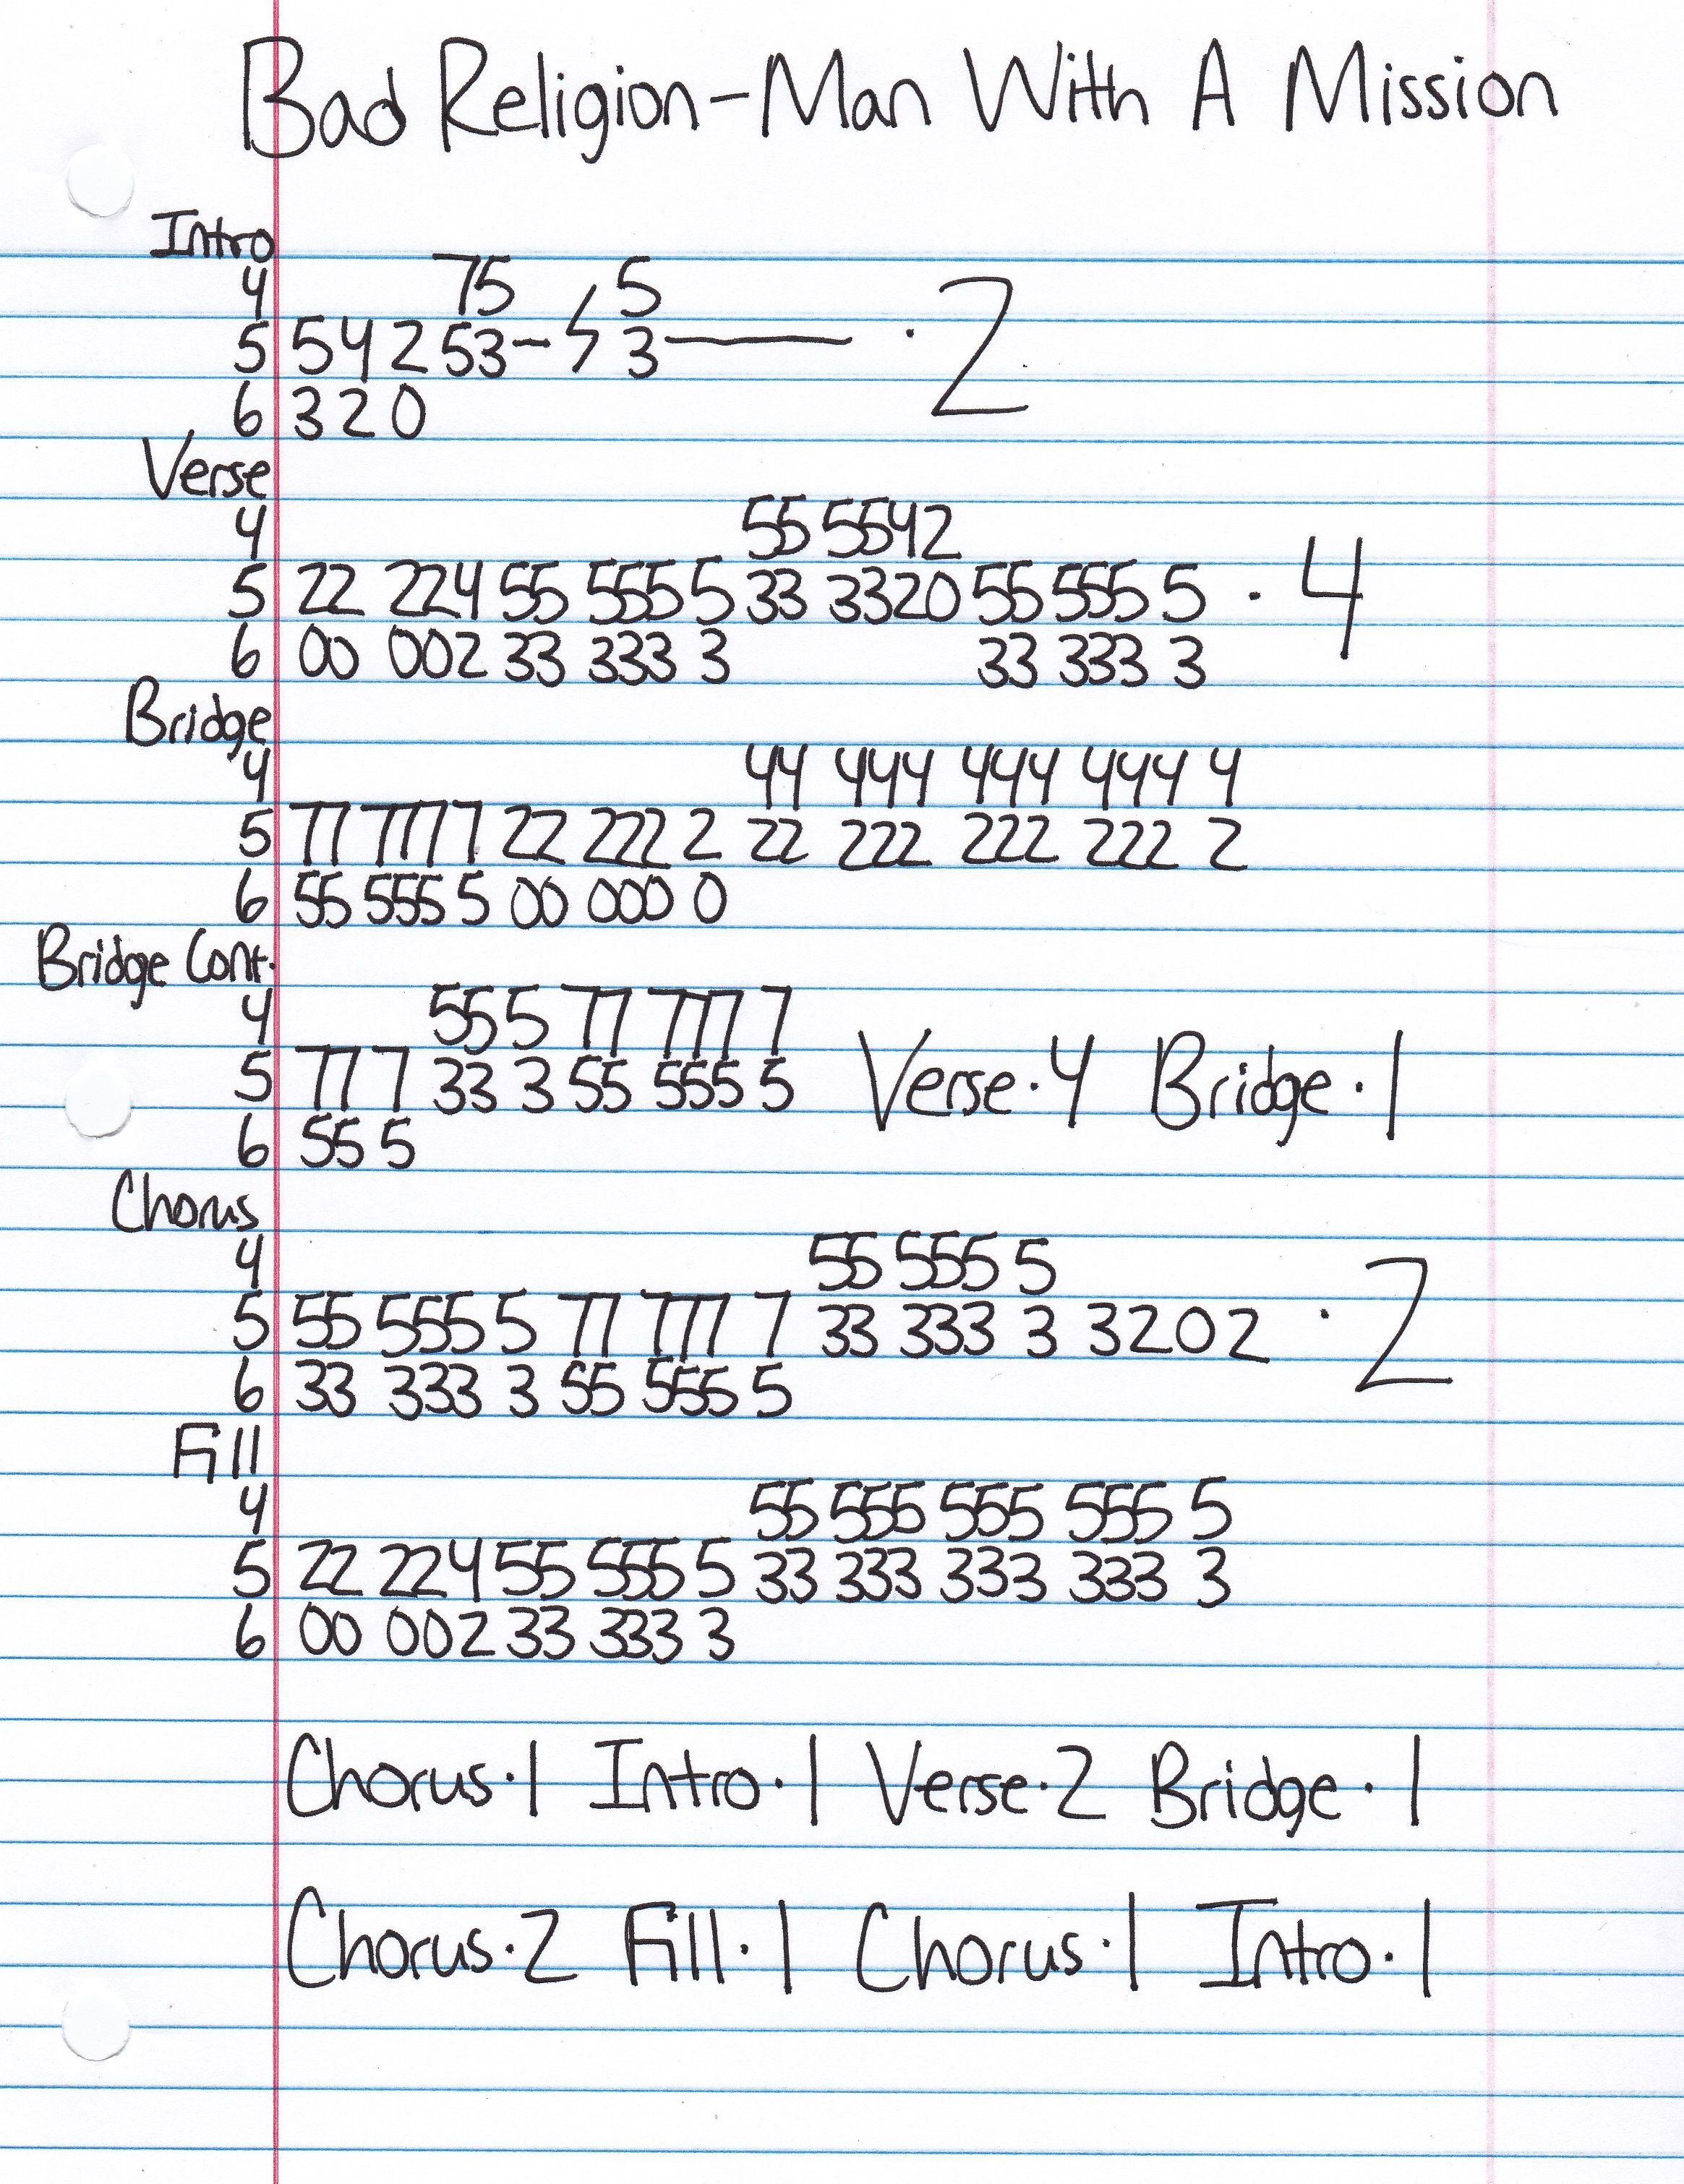 Bad Religion-Man With A Mission
Intro
4 75 5
5 5 4 2 53- 3
6 3 2 0
· 2
Verse
4 55 5542
5 22 224 55 555 5 33 3320 55 555 5 · 4
6 00 002 33 333 3 33 333 3
Bridge
4 44 444 444 444 4
5 77 777 7 22 222 2 22 222 222 222 2
6 55 555 5 00 000 0
Bridge Cont.
4 55 5 77 777 7
5 77 7 33 3 55 555 5 Verse·4 Bridge·1
6 55 5
Chorus
4 55 555 5
5 55 555 5 77 777 7 33 333 3 3202 · 2
6 33 333 3 55 555 5
Fill
4 55 555 555 555 5
5 22 224 55 555 5 33 333 333 333 3
6 00 002 33 333 3
Chorus·1 Intro·1 Verse·2 Bridge·1
Chorus·2 Fill·1 Chorus·1 Intro·1